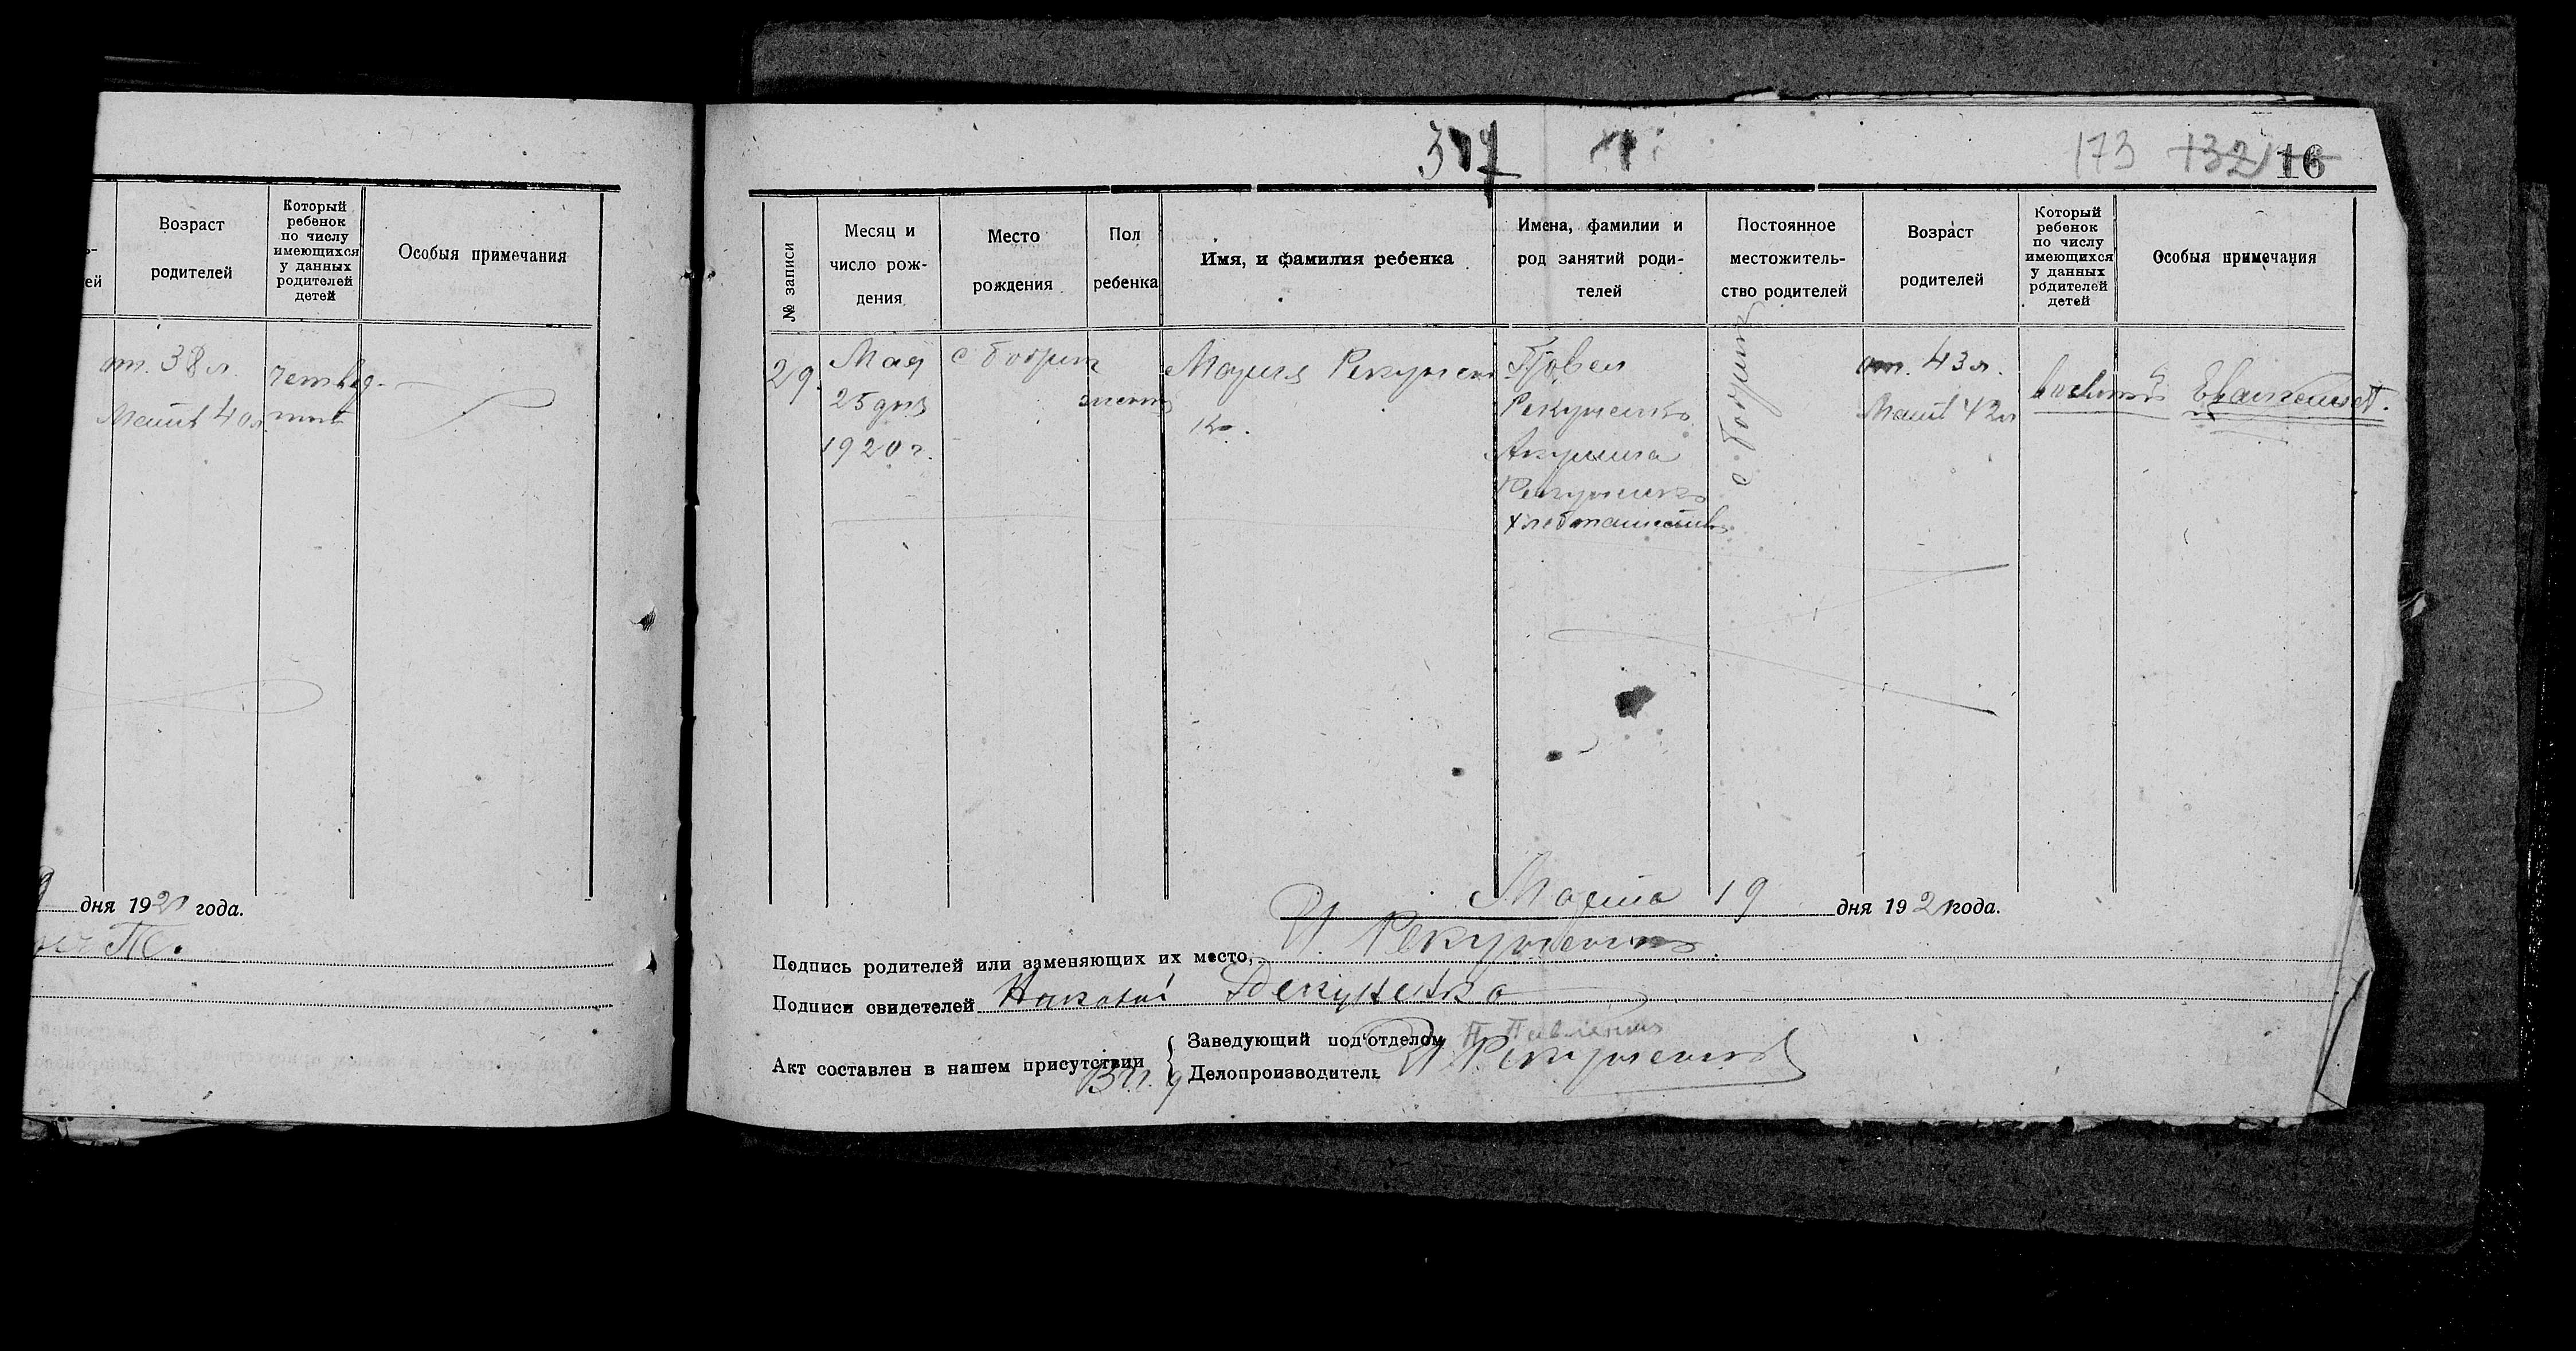 Возраст
родителей
Который
ребенок
по числу
имеющихся
у данных
родителей
детей
Особыя примечания
ей
от. 38 л.
Мать 40 л.
дня 1921 года.
317
173 132 16
№ записи
Месяц и
число рож-
дения
Место
рождения
Пол
ребенка
Имя, и фамилия ребенка
Имена, фамилии и
род занятий роди-
телей
Постоянное
местожитель-
ство родителей
Возраст
родителей
Который
ребенок
по числу
имеющихся
у данных
родителей
детей
Особыя примечания
29.
Мая
25 дня
1920 г.
Мария Рекунен
ко.
Павел
Рекуненко
Акулина
Рекуненко
от. 43 л.
Мать 42 л
Марта 19 дня 1921 года.
Подпись родителей или заменяющих их место, Рекуненко.
Подписи свидетелей Рекуненко
Акт составлен в нашем присутствии
Заведующий под'отделом
Делопроизводитель Рекуненко